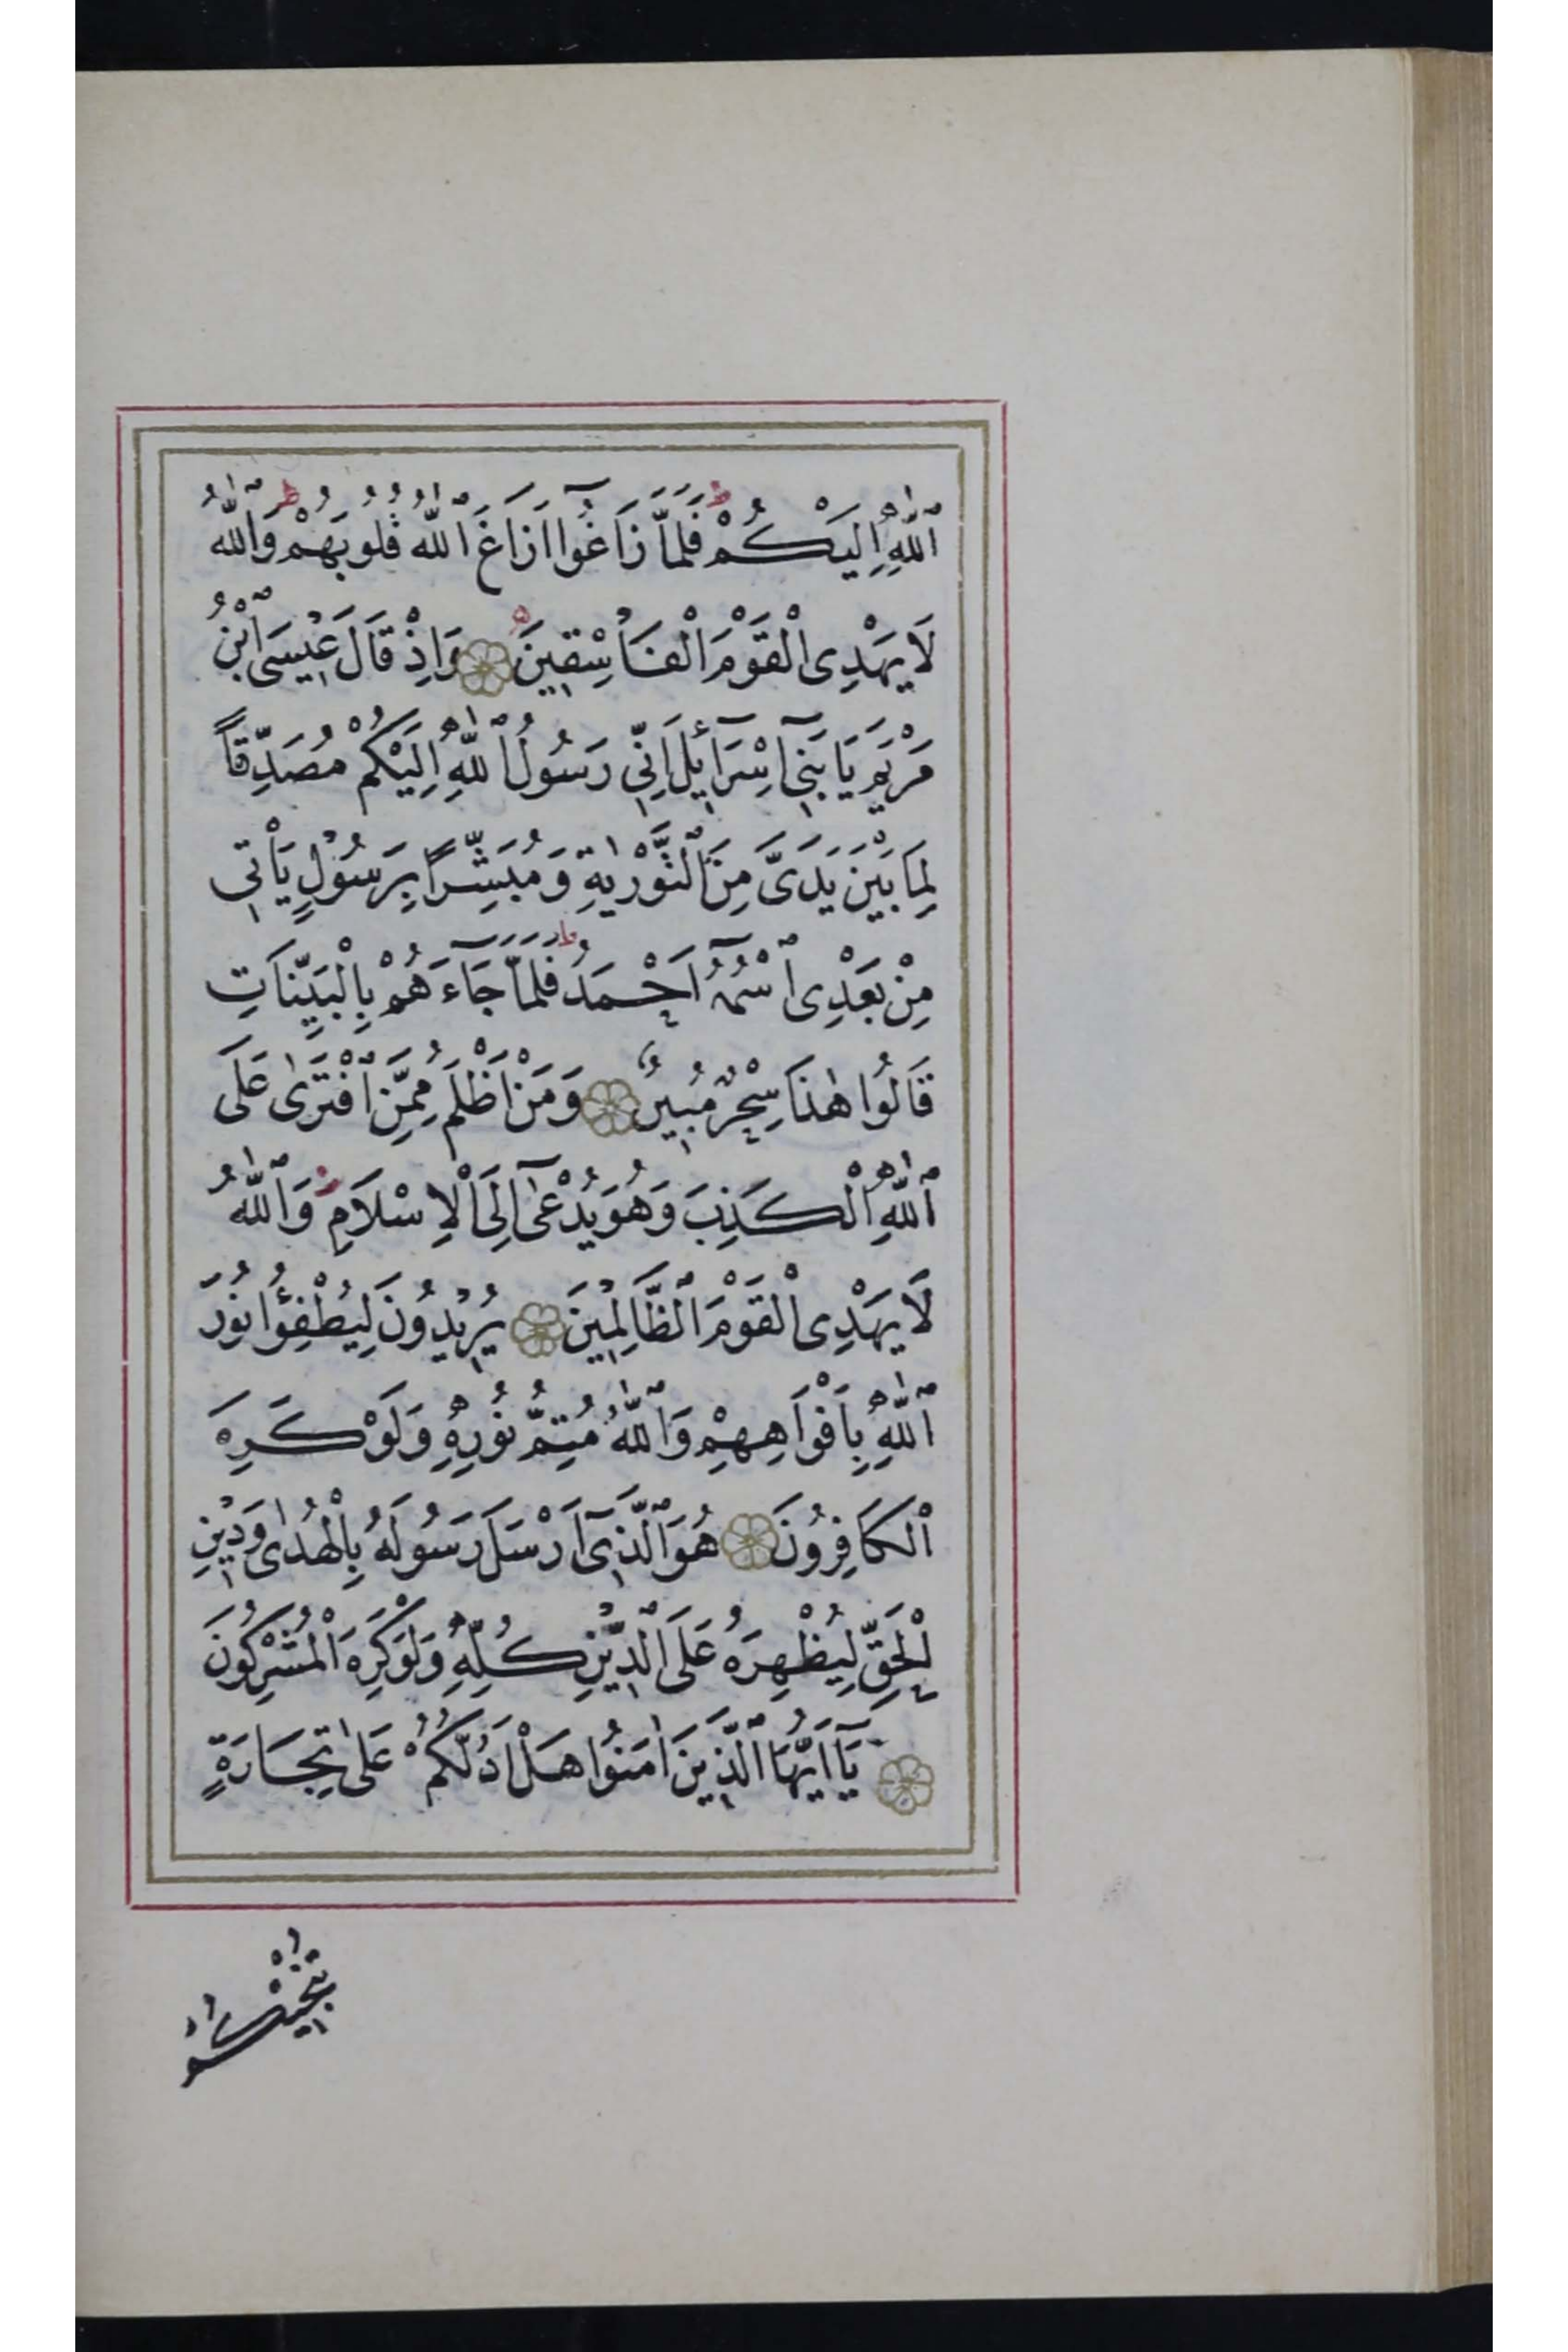 ٱللّٰهِ اِلَيْكُمْ ط فَلَمَّا زَاغُوٓا اَزَاغَ ٱللّٰهُ قُلُوبَهُمْ ط وَٱللّٰهُ
لَا يَهْدِى الْقَوْمَ الْفَاسِقِينَ ۝ وَاِذْ قَالَ عِيسَى ٱبْنُ
مَرْيَمَ يَا بَنِىٓ اِسْرَآئِلَ اِنِّى رَسُولُ ٱللّٰهِ اِلَيْكُمْ مُصَدِّقًا
لِمَا بَيْنَ يَدَىَّ مِنَ ٱلتَّوْرٰيةِ وَمُبَشِّرًا بِرَسُولٍ يَأْتِى
مِنْ بَعْدِى ٱسْمُهُٓ اَحْمَدُ ط فَلَمَّا جَآءَهُمْ بِالْبَيِّنَاتِ
قَالُوا هٰذَا سِحْرٌ مُبِينٌ ۝ وَمَنْ اَظْلَمُ مِمَّنِ ٱفْتَرٰى عَلَى
ٱللّٰهِ الْكَذِبَ وَهُوَ يُدْعٰىٓ اِلَى الْاِسْلَامِ ط وَٱللّٰهُ
لَا يَهْدِى الْقَوْمَ ٱلظَّالِمِينَ ۝ يُرِيدُونَ لِيُطْفِئُوا نُورَ
ٱللّٰهِ بِاَفْوَاهِهِمْ وَٱللّٰهُ مُتِمُّ نُورِهِ وَلَوْ كَرِهَ
الْكَافِرُونَ ۝ هُوَ ٱلَّذِىٓ اَرْسَلَ رَسُولَهُ بِالْهُدٰى وَدِينِ
الْحَقِّ لِيُظْهِرَهُ عَلَى ٱلدِّينِ كُلِّهِ وَلَوْ كَرِهَ الْمُشْرِكُونَ
۝ يَآ اَيُّهَا ٱلَّذِينَ اٰمَنُوا هَلْ اَدُلُّكُمْ عَلٰى تِجَارَةٍ
تُنْجِيكُمْ